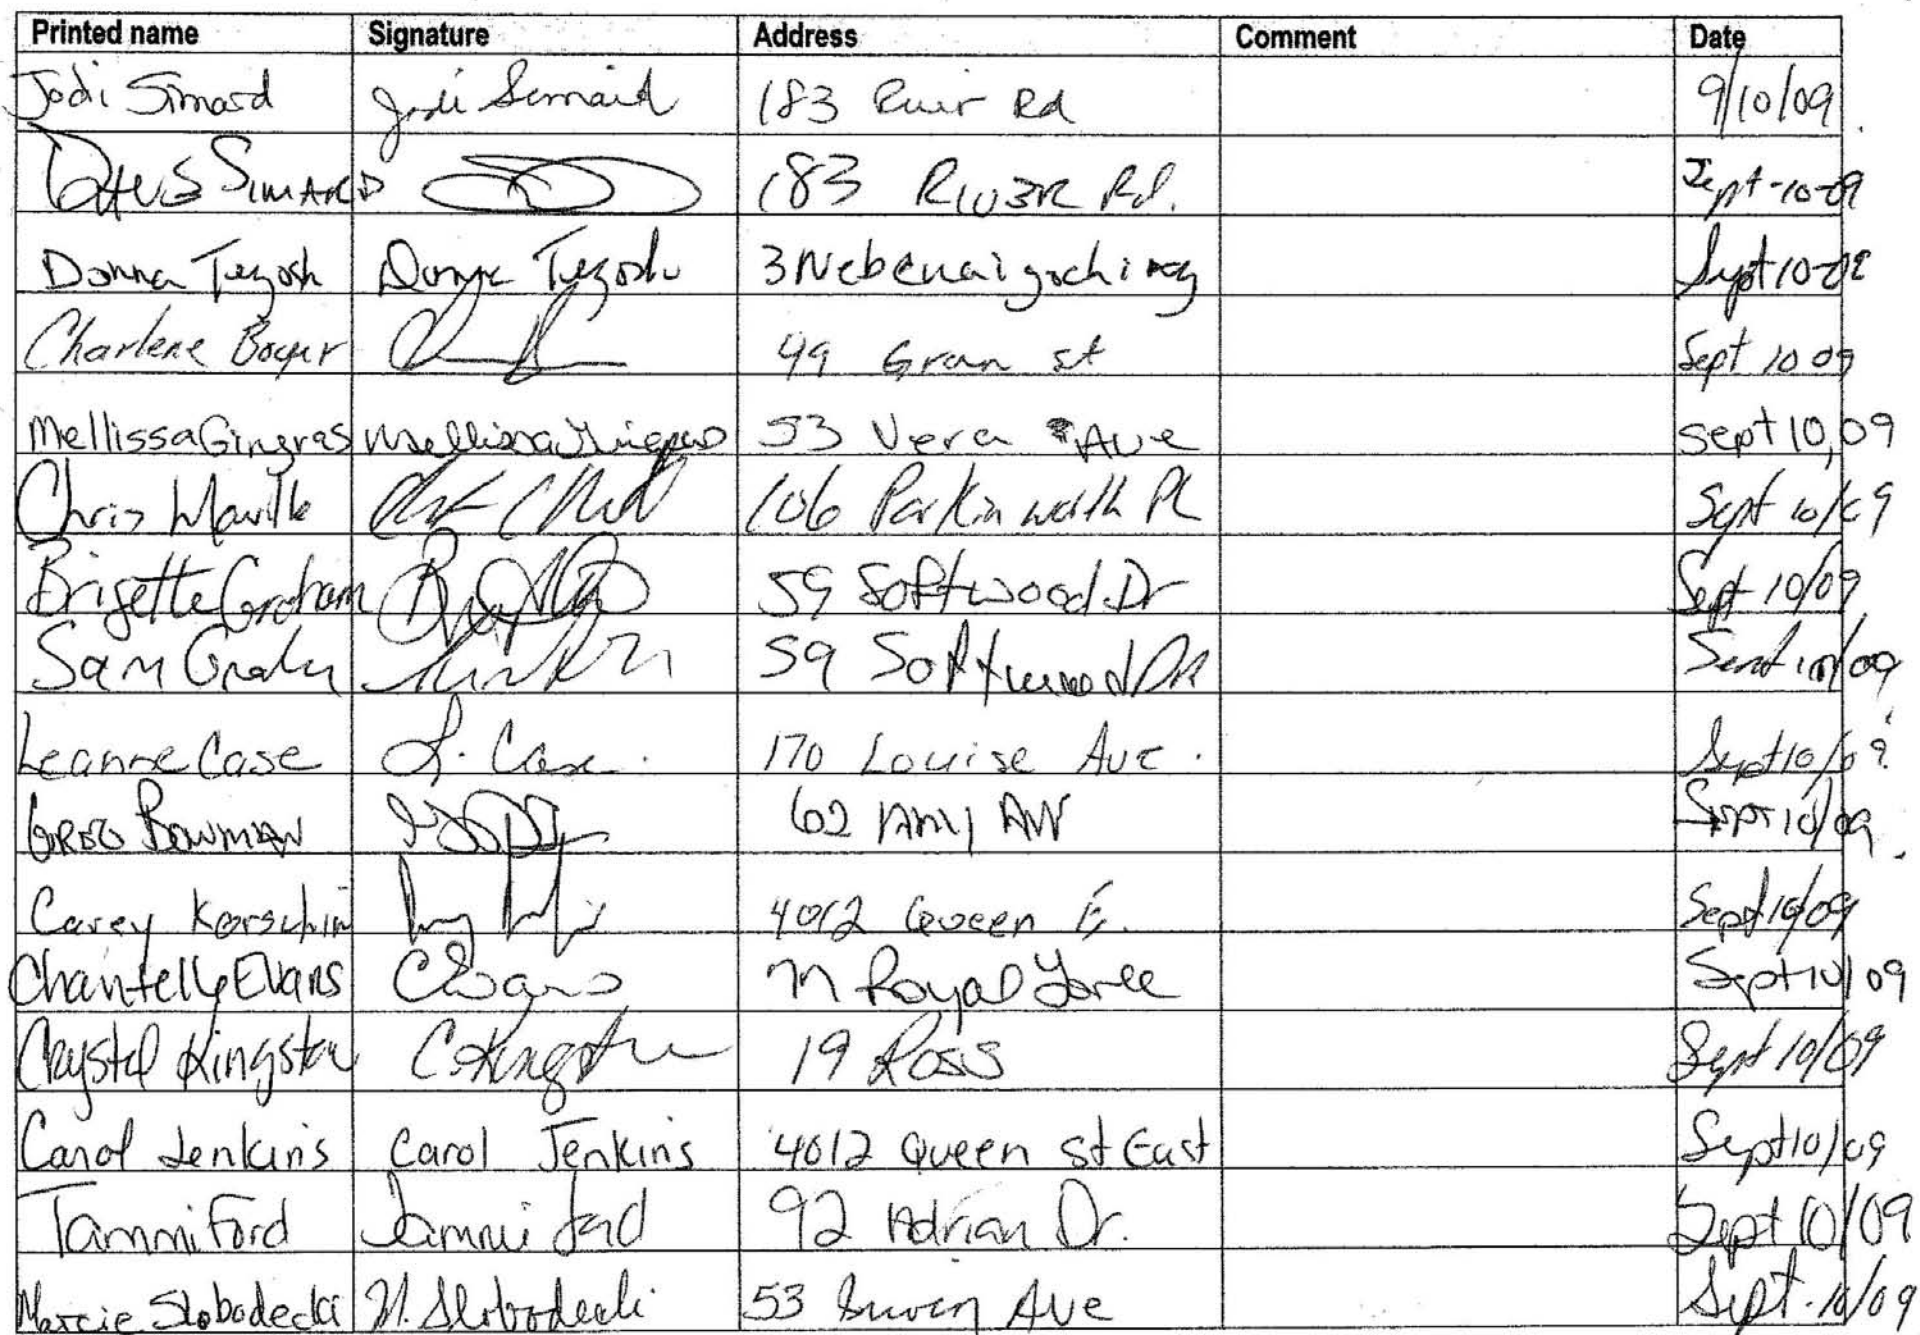 Printed name Signature Address Comment Date
Jodi Simard Jodi Simard 183 River Rd 9/10/09
SIMARD 183 RIVER Rd. Sept-10-09
Donna Tegosh Donna Tegosh 3 Nebenaigoching Sept 10-09
Charlene Boyer 49 Gran st Sept 10 09
Mellissa Gingras Mellissa Gingras 53 Vera Ave Sept 10,09
Chris 106 Parkinworth Pl Sept 10/09
Brigette Graham 59 Softwood Dr Sept 10/09
Sam 59 Softwood Dr Sept 10/09
Leanne Case L. Case. 170 Louise Ave. Sept 10/09
GREG BOWMAN 62 AMY AV Sept 10/09
Carey 4012 Queen E. Sept 10/09
Chantelle Evans C Evans Royal Sept 10/09
Crystal Kingston C Kingston 19 Ross Sept 10/09
Carol Jenkins Carol Jenkins 4012 Queen St East Sept 10/09
Tammi Ford Tammi Ford 92 Adrian Dr. Sept 10/09
Marcie Slobodecki M. Slobodecki 53 Ave Sept. 10/09